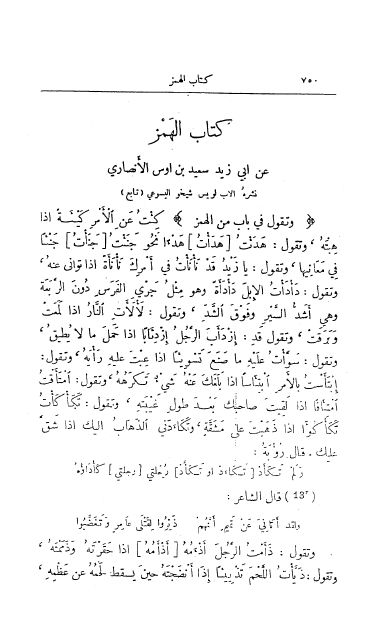 ٧٥٠ كتاب الهمز
كتاب الهَمْز
عن ابي زيد سعيد بن اوس الأنصاري
نشره الاب لويس شيخو اليسوعي (تابع)
﴿ وتقول في باب من الهمز ﴾ كِئْتُ عَنِ الْأَمْرِ كَيْئَةً اذا
هِبْتَهُ ، وتقول : هَدَئْتُ [هَدَأْتُ] هَدْءًا نَحْوَ جَنَئْتُ [جَنَأْتُ] جَنْئًا
في مَعَانِيها ، وتقول : يا زَيْدُ قَدْ تَأْتَأْتَ في أَمْرِكَ تَأْتَأَةً اذا تَوَانى عنه ،
وتقول : دَأْدَأَتِ الإِبِلُ دَأْدَأَةً وهو مِثْلُ جَرْيِ الفَرَسِ دُونَ الرَّبَعَةِ
وهي أَشَدُّ السَّيْرِ وَفَوْقَ الشَّدِّ ، وتقول : لَأْلَأَتِ النَّارُ اذا لَمَعَتْ
وَبَرَقَتْ ، وتقول قد : إِزْدَأَبَ الرَّجُلُ إِزْدِئَابًا اذا حَمَلَ ما لا يُطِيقُ ،
وتقول : سَوَّأْتُ عَلَيْهِ ما صَنَعَ تَسْوِيئًا اذا عِبْتَ عليه رَأْيَهُ ، وتقول:
إِبْتَأَسْتُ بالأَمْرِ ابْتِئَاسًا اذا بَلَغَكَ عَنْهُ شيءٌ تَكْرَهُهُ ، وتقول: امْتَأَقْتُ
امْتِئَاقًا اذا لَقِيتَ صاحبَكَ بَعْدَ طولِ غَيْبَتِهِ ، وتقول : تَكَأْكَأْتُ
تَكَأْكُؤًا اذا ذَهَبْتَ على مَشَقَّةٍ ، وتَكَاءَدَني الذَهَابُ اليك اذا شقَّ
عليك . قال رُؤْبَةُ :
وَلَمْ تَكَأَّدْ [تَكاءَدْ او تَكَأَّدْ] رُحْلَتي [رِحلتي] كَأْدَاؤُهُ
(13ᵛ) قال الشاعر :
ولقد أَتَانيَ عَنْ تَمِيمٍ أَنَّهُم ذَئِرُوا لِقَتْلَى عَامِرٍ وَتَغَضَّبُوا
وتقول : ذَأَمْتُ الرَّجُلَ أَذْءَمُهُ [أَذْأَمُهُ] اذا حَقَرْتَهُ وَذَمَمْتَهُ ،
وتقول : ذَيَّأْتُ اللَّحْمَ تَذْيِيئًا إِذَا أَنْضَجْتَهُ حينَ يسقط لَحْمُهُ عن عَظْمِهِ ،